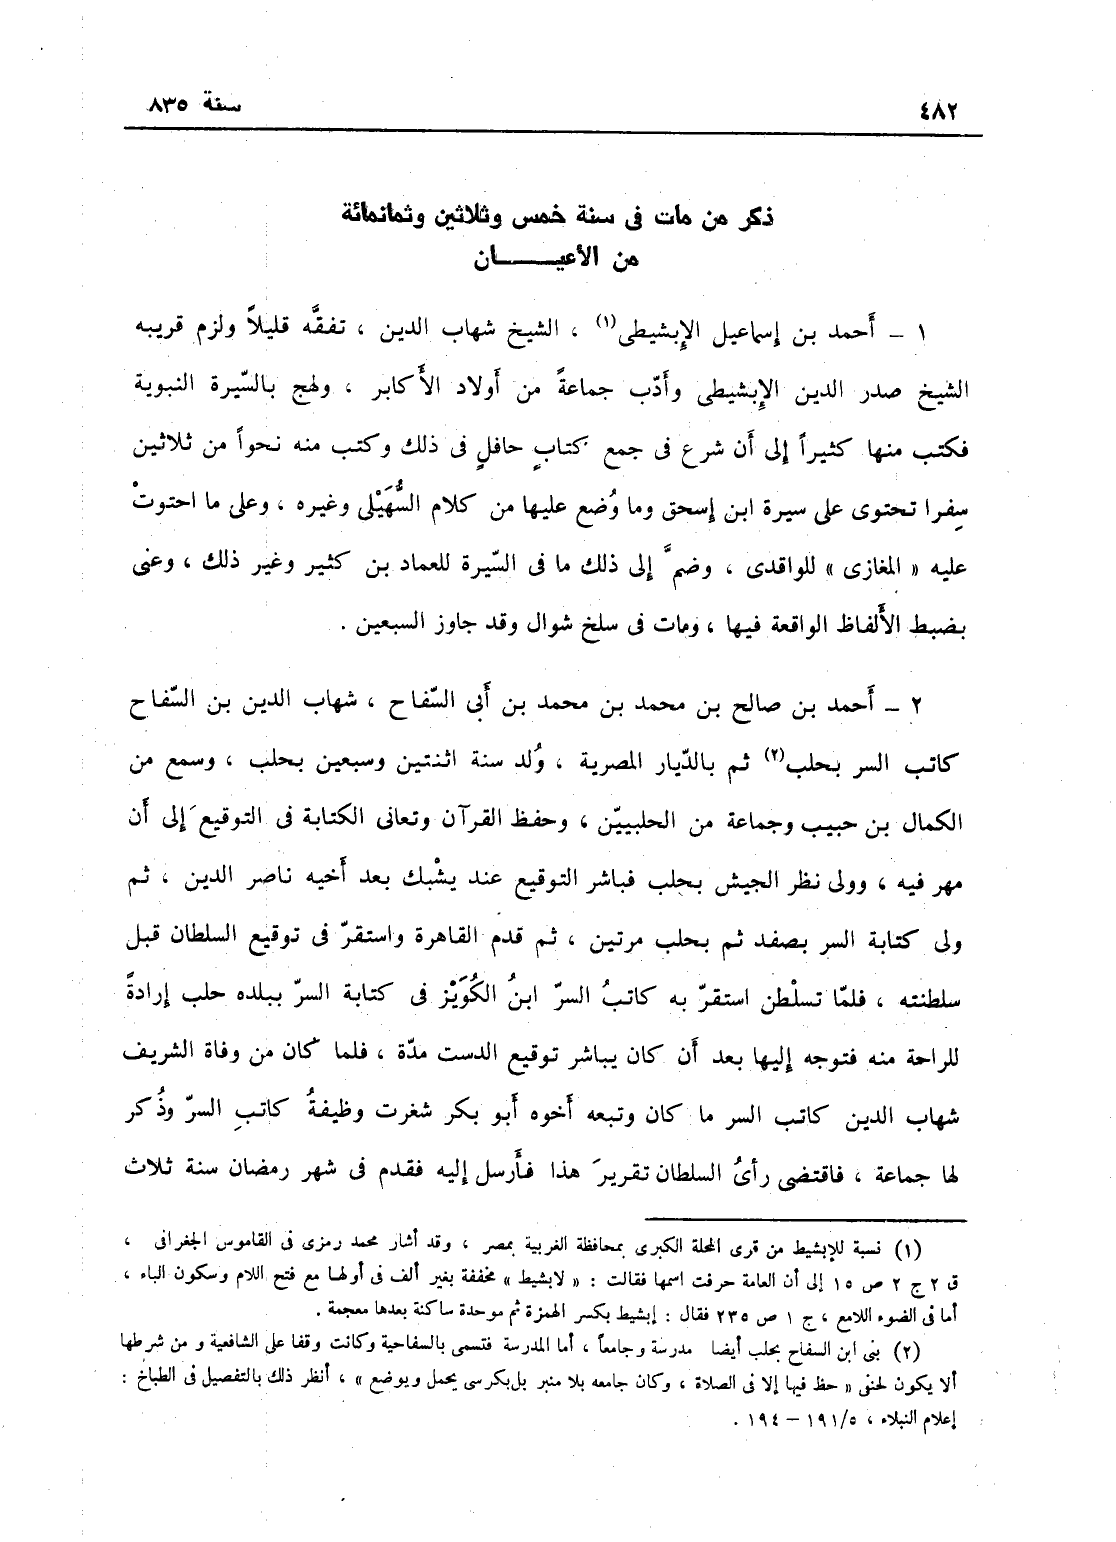 ٤٨٢ سنة ٨٣٥
ذكر من مات فى سنة خمس وثلاثين وثمانمائة
من الأعيـــــان
١ ــ أَحمد بن إسماعيل الإِبشيطى(١) ، الشيخ شهاب الدين ، تفقَّه قليلاً ولزم قريبه
الشيخ صدر الدين الإِبشيطى وأَدّب جماعةً من أَولاد الأَكابر ، ولهج بالسّيرة النبوية
فكتب منها كثيراً إلى أَن شرع فى جمع كتابٍ حافلٍ فى ذلك وكتب منه نحواً من ثلاثين
سِفرا تحتوى على سيرة ابن إسحق وما وُضع عليها من كلام السُّهَيْلى وغيره ، وعلى ما احتوتْ
عليه « المغازى » للواقدى ، وضمَّ إلى ذلك ما فى السّيرة للعماد بن كثير وغير ذلك ، وعنى
بضبط الأَلفاظ الواقعة فيها ، ومات فى سلخ شوال وقد جاوز السبعين .
٢ ــ أَحمد بن صالح بن محمد بن محمد بن أَبى السّفاح ، شهاب الدين بن السّفاح
كاتب السر بحلب(٢) ثم بالدّيار المصرية ، وُلد سنة اثنتين وسبعين بحلب ، وسمع من
الكمال بن حبيب وجماعة من الحلبييّن ، وحفظ القرآن وتعانى الكتابة فى التوقيع إلى أَن
مهر فيه ، وولى نظر الجيش بحلب فباشر التوقيع عند يشْبك بعد أَخيه ناصر الدين ، ثم
ولى كتابة السر بصفد ثم بحلب مرتين ، ثم قدم القاهرة واستقرّ فى توقيع السلطان قبل
سلطنته ، فلمّا تسلْطن استقرّ به كاتبُ السرّ ابنُ الكُوَيْز فى كتابة السرّ ببلده حلب إرادةً
للراحة منه فتوجه إليها بعد أَن كان يباشر توقيع الدست مدّة ، فلما كان من وفاة الشريف
شهاب الدين كاتب السر ما كان وتبعه أَخوه أَبو بكر شغرت وظيفةُ كاتبِ السرّ وذُكر
لها جماعة ، فاقتضى رأىُ السلطان تقريرَ هذا فأَرسل إليه فقدم فى شهر رمضان سنة ثلاث
(١) نسبة للإبشيط من قرى المحلة الكبرى بمحافظة الغربية بمصر ، وقد أشار محمد رمزى فى القاموس الجغرافى ،
ق ٢ ج ٢ ص ١٥ إلى أن العامة حرفت اسمها فقالت : « لابشيط » مخففة بغير ألف فى أولها مع فتح اللام وسكون الباء ،
أما فى الضوء اللامع ، ج ١ ص ٢٣٥ فقال : إبشيط بكسر الهمزة ثم موحدة ساكنة بعدها معجمة .
(٢) بنى ابن السفاح بحلب أيضا مدرسة وجامعاً ، أما المدرسة فتسمى بالسفاحية وكانت وقفا على الشافعية و من شرطها
ألا يكون لحنفى « حظ فيها إلا فى الصلاة ، وكان جامعه بلا منبر بل بكرسى يحمل ويوضع » ، أنظر ذلك بالتفصيل فى الطباخ :
إعلام النبلاء ، ١٩١/٥ – ١٩٤ .